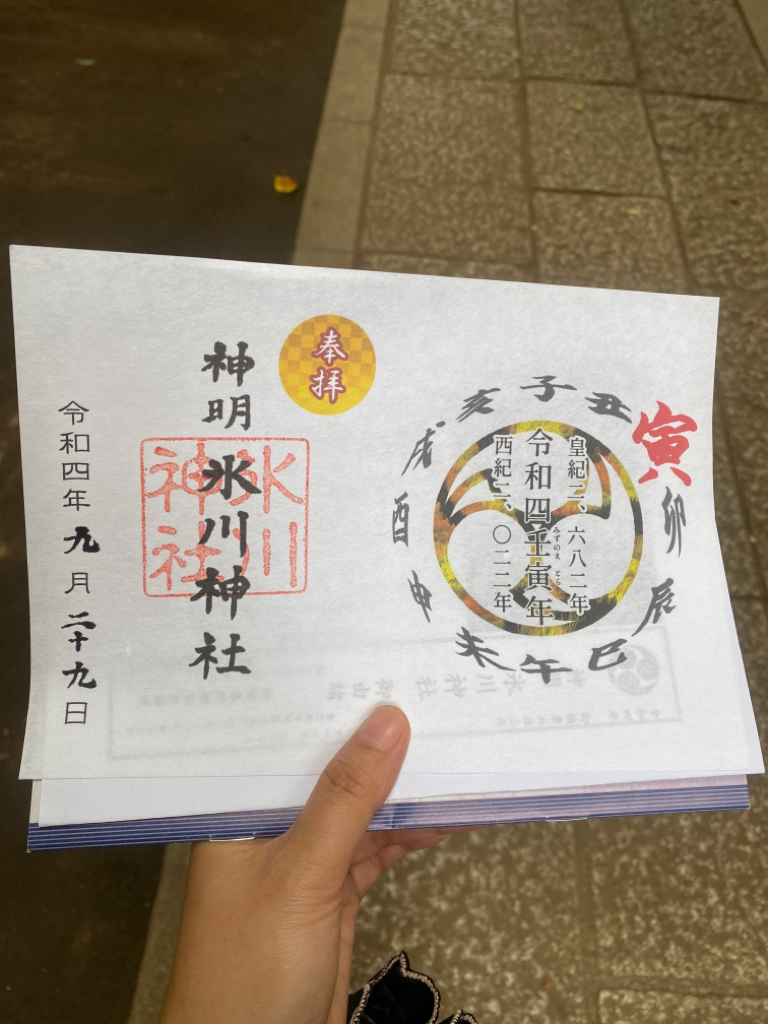 皇紀二、六八二年
令和四壬寅年
みずのえ とら
西紀二、〇二二年
子
丑
寅
卯
辰
巳
午
未
申
酉
戌
亥
奉拝
神明氷川神社
氷川
神社
令和四年九月二十九日
氷川神社 御由緒